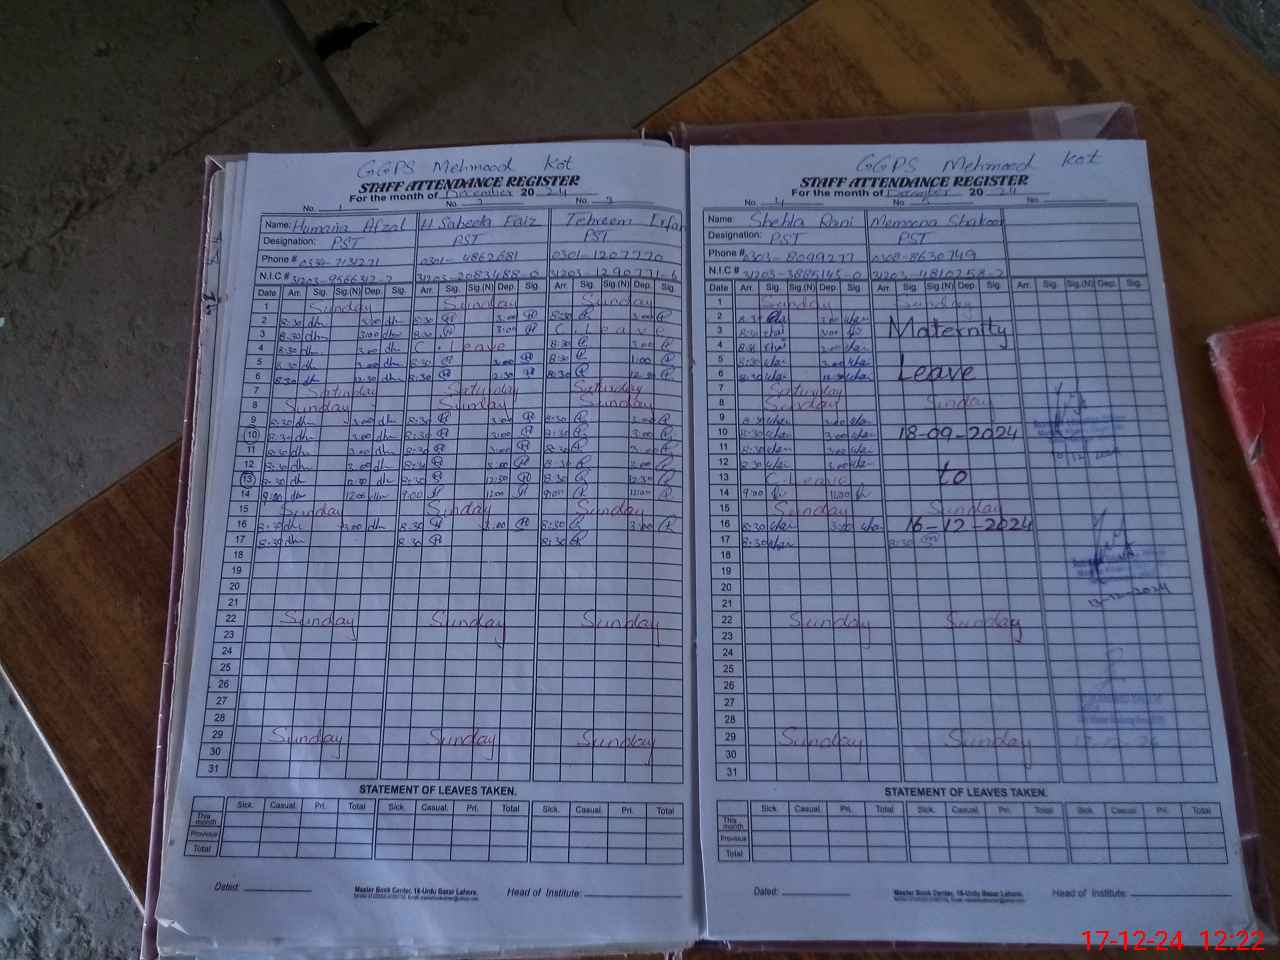 GGPS Mehmood Kot
STAFF ATTENDANCE REGISTER
For the month of December 20 24
No. 1 No. 2 No. 3
Name: Humaira Afzal Saheela Faiz Tehreem Irfan
Designation: PST PST PST
Phone # 0301-4862681 0301-1207770
N.I.C # 31203-9566312-2 31203-2083488-0 31203-1290771-6
Date Arr. Sig. Sig.(N) Dep. Sig. Arr. Sig. Sig.(N) Dep. Sig. Arr. Sig. Sig.(N) Dep. Sig.
1 Sunday Sunday Sunday
2 8:30 dh 3:00 dh 8:30 3:00 8:30 3:00
3 8:30 dh 3:00 dh 8:30 3:00 C. Leave
4 8:30 dh 3:00 dh C. Leave 8:30 3:00
5 8:30 dh 3:00 dh 8:30 3:00 8:30 1:00
6 8:30 dh 12:30 dh 8:30 12:30 8:30 12:30
7 Saturday Saturday Saturday
8 Sunday Sunday Sunday
9 8:30 dh 3:00 dh 8:30 3:00 8:30 3:00
10 8:30 dh 3:00 dh 8:30 3:00 8:30 3:00
11 8:30 dh 3:00 dh 8:30 3:00 8:30 3:00
12 8:30 dh 3:00 dh 8:30 3:00 8:30 3:00
13 8:30 dh 12:30 dh 8:30 12:30 8:30 12:30
14 9:00 dh 12:00 dh 9:00 12:00 9:00 12:00
15 Sunday Sunday Sunday
16 8:30 dh 3:00 dh 8:30 3:00 8:30 3:00
17 8:30 dh 8:30 8:30
18
19
20
21
22 Sunday Sunday Sunday
23
24
25
26
27
28
29 Sunday Sunday Sunday
30
31
STATEMENT OF LEAVES TAKEN.
Sick. Casual. Pri. Total Sick. Casual. Pri. Total Sick. Casual. Pri. Total
This month
Previous
Total
Dated: Master Book Center, 16-Urdu Bazar Lahore. Head of Institute:
GGPS Mehmood Kot
STAFF ATTENDANCE REGISTER
For the month of December 20 24
No. 4 No. 5 No.
Name: Shehla Rani Memoona Shakoor
Designation: PST PST
Phone # 0303-8099277 0308-8630749
N.I.C # 31203-3885145-0 31203-4810258-2
Date Arr. Sig. Sig.(N) Dep. Sig. Arr. Sig. Sig.(N) Dep. Sig. Arr. Sig. Sig.(N) Dep. Sig.
1 Sunday Sunday
2 8:30 3:00
3 8:30 3:00 Maternity
4 8:30 3:00
5 8:30 3:00
6 8:30 12:30 Leave
7 Saturday
8 Sunday Sunday
9 8:30 3:00
10 8:30 3:00 18-09-2024
11 8:30 3:00
12 8:30 3:00
13 C. Leave to
14 9:00 12:00
15 Sunday Sunday
16 8:30 3:00 16-12-2024
17 8:30 8:30
18
19
20
21
22 Sunday Sunday
23
24
25
26
27
28
29 Sunday Sunday
30
31
STATEMENT OF LEAVES TAKEN.
Sick. Casual. Pri. Total Sick. Casual. Pri. Total Sick. Casual. Pri. Total
This month
Previous
Total
Dated: Master Book Center, 16-Urdu Bazar Lahore. Head of Institute:
17-12-24 12:22